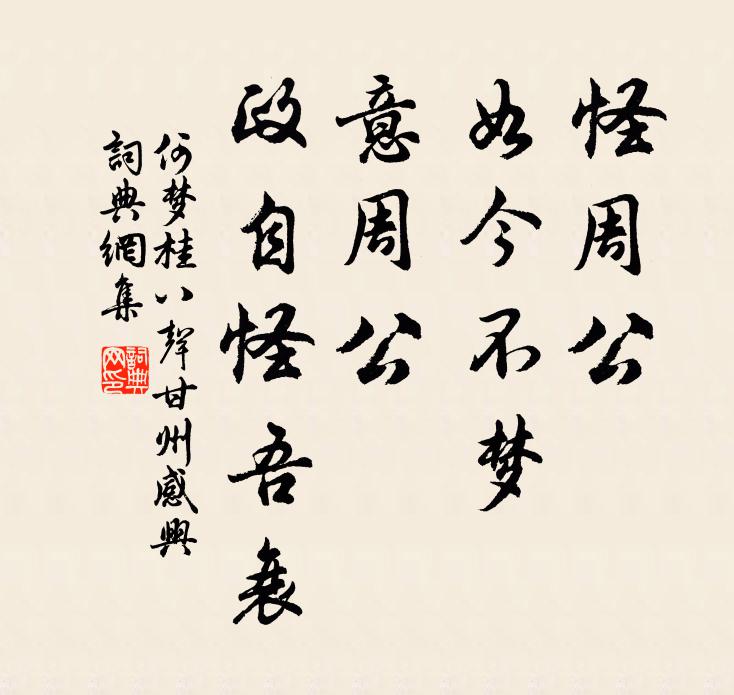 怪周公
如今不梦
意周公
政自怪吾衰
何梦桂八聲甘州感興
詞典網集
詞典网印